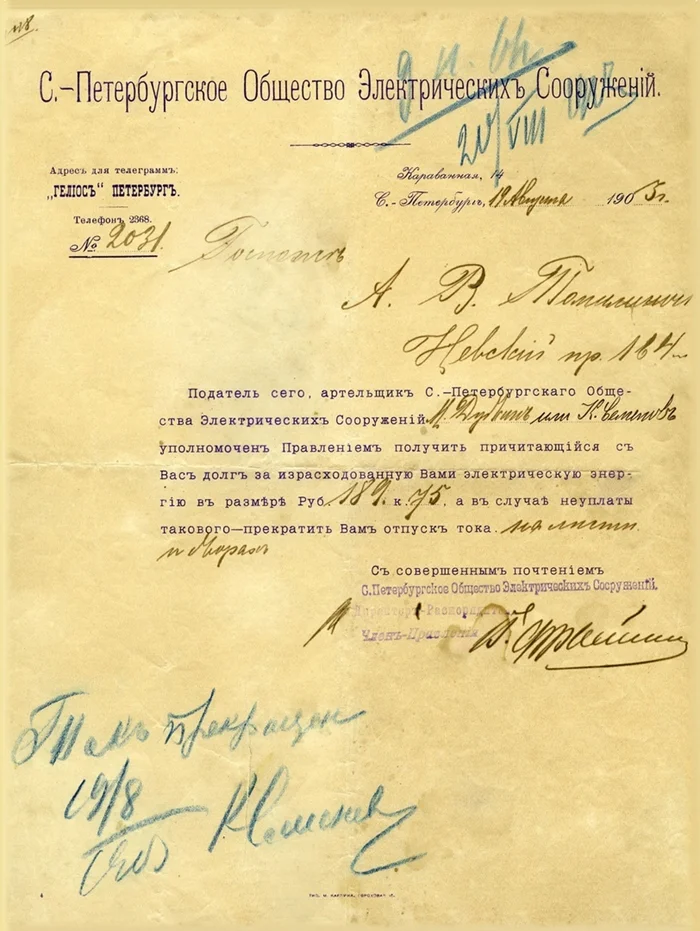 С.-Петербургское Общество Электрическихъ Сооруженій.
20/VIII
Адресъ для телеграммъ:
„ГЕЛІОСЪ“ ПЕТЕРБУРГЪ.
Телефонъ 2368.
№ 2031.
Караванная, 14
С.-Петербургъ, 19 Августа 1903 г.
А. В.
Невский пр. 184
Податель сего, артельщикъ С.-Петербургскаго Обще-
ства Электрическихъ Сооруженій или К. Семеновъ
уполномоченъ Правленіемъ получить причитающійся съ
Васъ долгъ за израсходованную Вами электрическую энер-
гію въ размѣрѣ Руб. 189. к. 75. а въ случаѣ неуплаты
такового—прекратить Вамъ отпускъ тока.
Съ совершеннымъ почтеніемъ
С.Петербургское Общество Электрическихъ Сооруженій.
Членъ-Правленія
Токъ прекращен
19/8
К Семенов